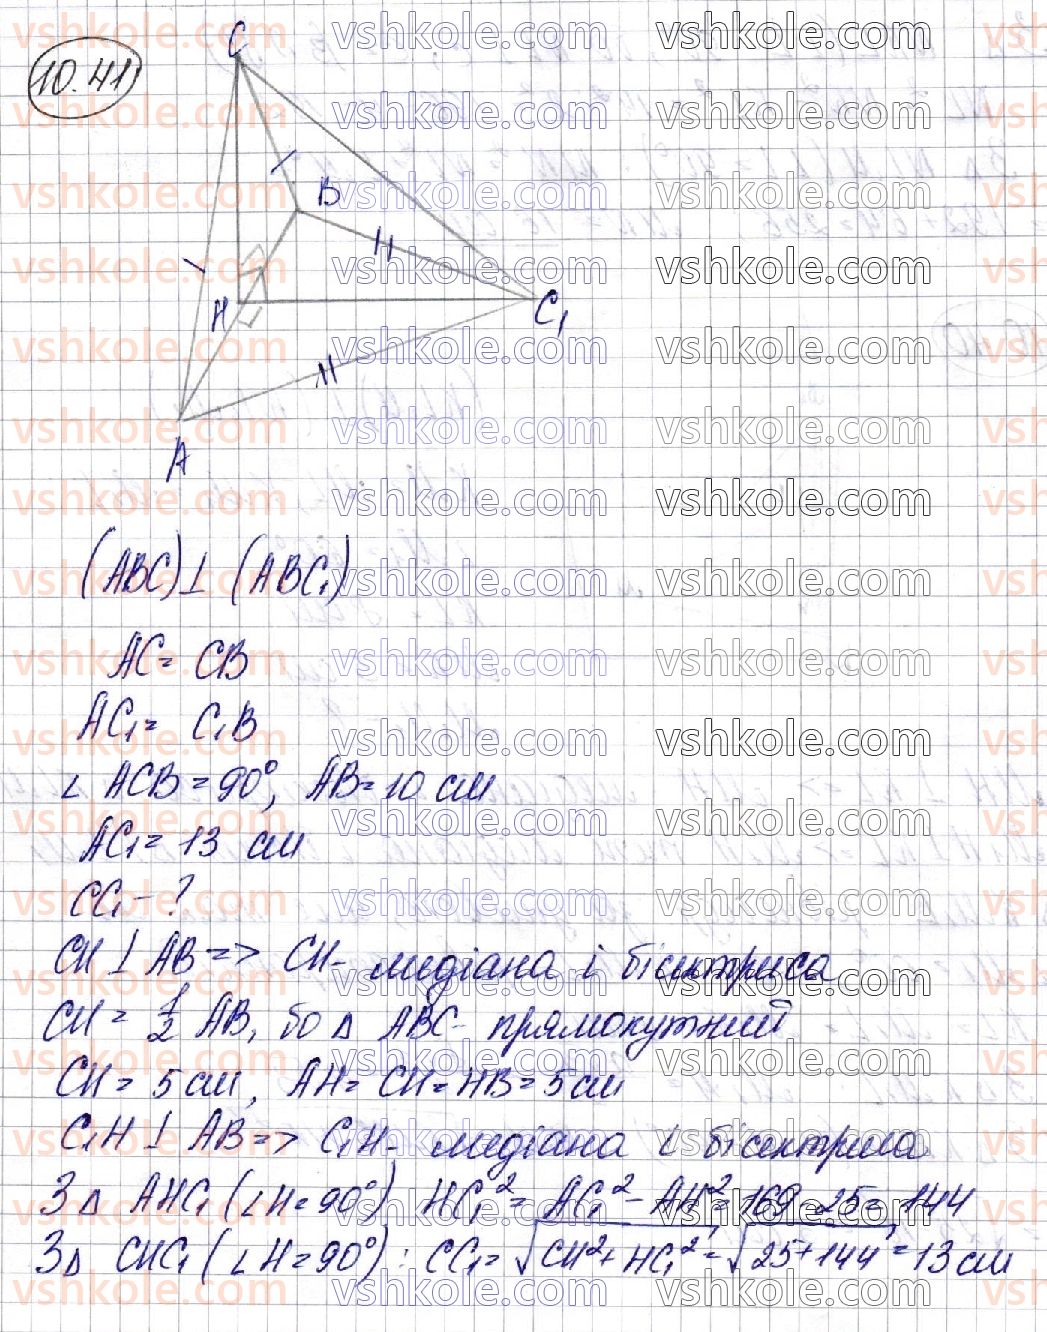 10.41
C
B
H
C₁
A
(ABC)⊥(ABC₁)
AC = CB
AC₁ = C₁B
∠ACB = 90°, AB = 10 см
AC₁ = 13 см
CC₁ - ?
CH ⊥ AB => CH - медіана і бісектриса
CH = 1/2 AB, бо Δ ABC - прямокутний
CH = 5 см, AH = CH = HB = 5 см
C₁H ⊥ AB => C₁H - медіана і бісектриса
З Δ AHC₁ (∠H = 90°) HC₁² = AC₁² - AH² = 169 - 25 = 144
З Δ CHC₁ (∠H = 90°) : CC₁ = √CH² + HC₁² = √25 + 144 = 13 см
vshkole.com